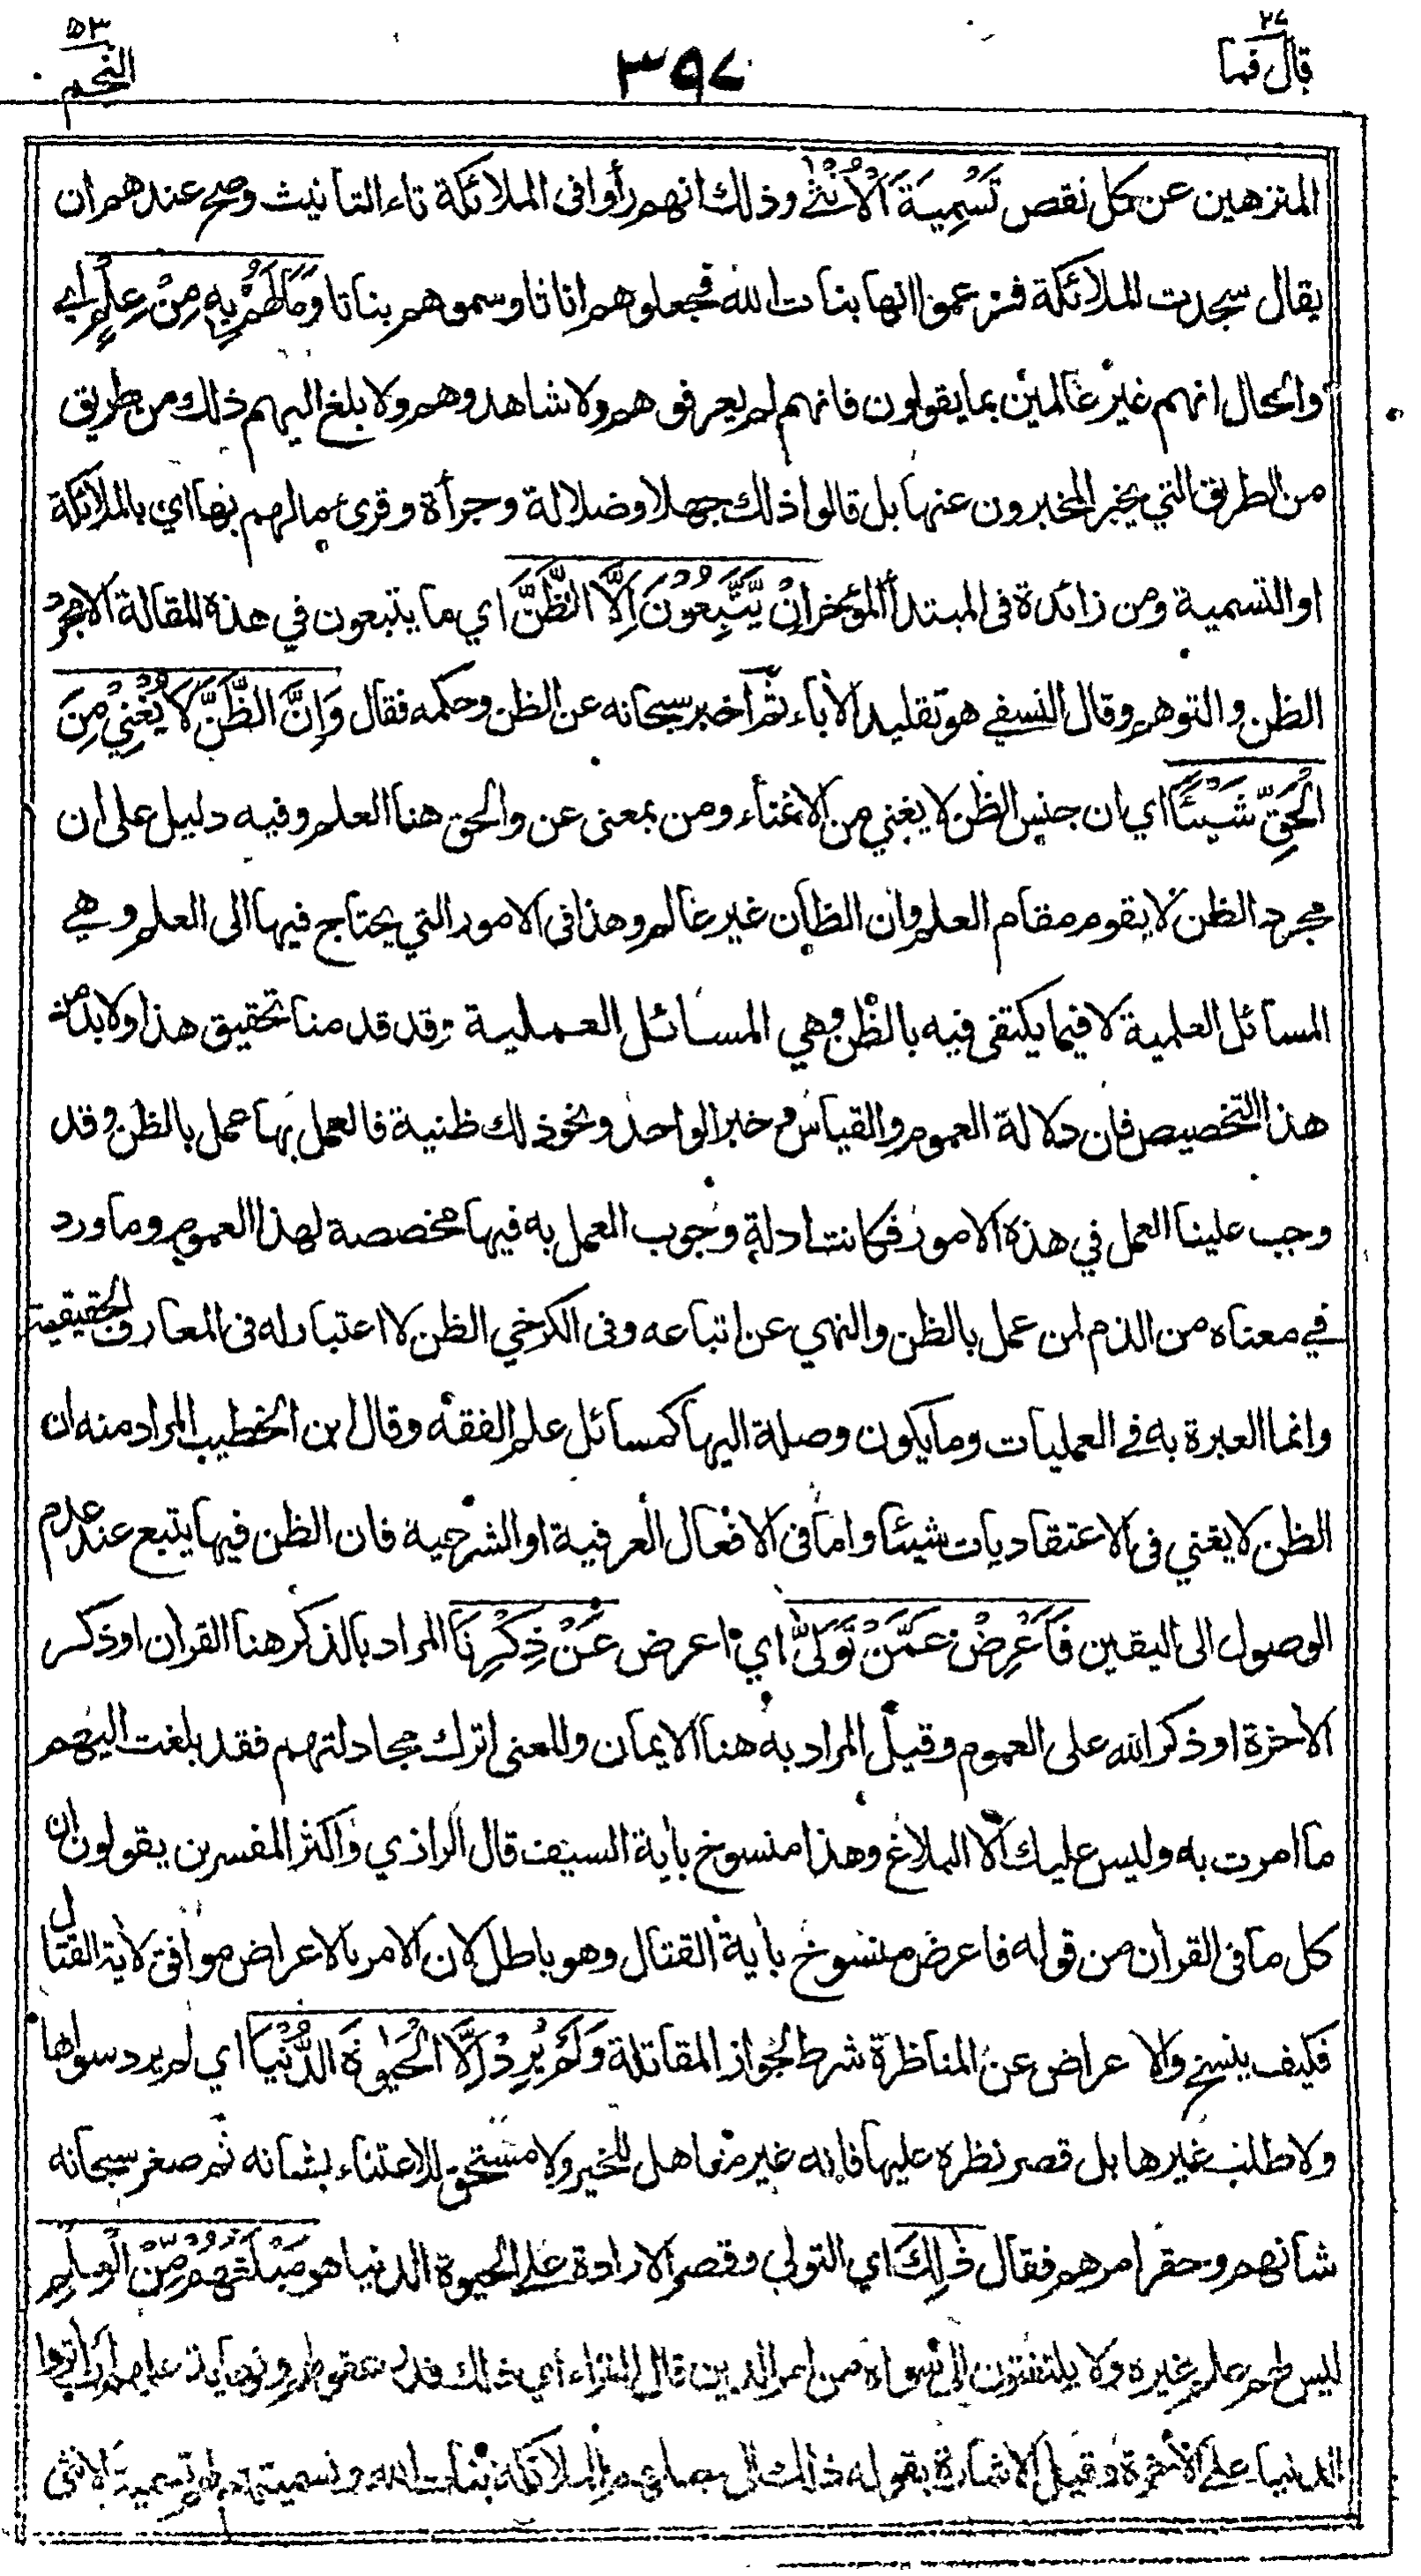 ٢٧
قال فما
٣٩٧
٥٣
النجم
المنزهين عن كل نقص تَسْمِيَةَ الْأُنْثٰى وذلك انهم رأوا فى الملائكة تاء التانيث وصح عندهم ان
يقال سجدت الملائكة فزعموا انها بنات الله فجعلوهم اناثا وسموهم بناتا وَمَا لَهُمْ بِهٖ مِنْ عِلْمٍ اي
والحال انهم غير عالمين بما يقولون فانهم لم يعرفوهم ولا شاهدوهم ولا بلغ اليهم ذلك من طريق
من الطريق التي يخبر المخبرون عنها بل قالوا ذلك جهلا وضلالة وجرأة وقرئ ما لهم بها اي بالملائكة
او التسمية ومن زائدة فى المبتدأ المؤخر اِنْ يَّتَّبِعُوْنَ اِلَّا الظَّنَّ اي ما يتبعون في هذه المقالة الا مجرد
الظن والتوهم وقال النسفي هو تقليد الأباء ثم اخبر سبحانه عن الظن وحكمه فقال وَاِنَّ الظَّنَّ لَا يُغْنِيْ مِنَ
الْحَقِّ شَيْئًا اي ان جنس الظن لا يغني من الاغناء ومن بمعنى عن والحق هنا العلم وفيه دليل على ان
مجرد الظن لا يقوم مقام العلم وان الظان غير عالم وهذا فى الامور التي يحتاج فيها الى العلم وهي
المسائل العلمية لا فيما يكتفى فيه بالظن وهي المسائل العملية وقد قدمنا تحقيق هذا ولا بد من
هذا التخصيص فان دلالة العموم والقياس وخبر الواحد ونحو ذلك ظنية فالعمل بها عمل بالظن وقد
وجب علينا العمل في هذه الامور فكانت ادلة وجوب العمل به فيها مخصصة لهذا العموم وما ورد
في معناه من الذم لمن عمل بالظن والنهي عن اتباعه وفى الكرخي الظن لا اعتبار له فى المعارف الحقيقية
وانما العبرة به في العمليات وما يكون وصلة اليها كمسائل علم الفقه وقال ابن الخطيب المراد منه ان
الظن لا يغني فى الاعتقاديات شيئا واما فى الافعال العرفية او الشرعية فان الظن فيها يتبع عند عدم
الوصول الى اليقين فَاَعْرِضْ عَمَّنْ تَوَلّٰى اي اعرض عَنْ ذِكْرِنَا المراد بالذكر هنا القرأن او ذكر
الأخرة او ذكر الله على العموم وقيل المراد به هنا الايمان والمعنى اترك مجادلتهم فقد بلغت اليهم
ما امرت به وليس عليك الا البلاغ وهذا منسوخ بأية السيف قال الرازي واكثر المفسرين يقولون ان
كل ما فى القرأن من قوله فاعرض منسوخ بأية القتال وهو باطل لان الامر بالاعراض موافق لأية القتال
فكيف ينسخ والاعراض عن المناظرة شرط لجواز المقاتلة وَلَمْ يُرِدْ اِلَّا الْحَيٰوةَ الدُّنْيَا اي لم يرد سواها
ولا طلب غيرها بل قصر نظره عليها فانه غير متأهل للخير ولا مستحق للاعتناء بشأنه ثم صغر سبحانه
شأنهم وحقر امرهم فقال ذٰلِكَ اي التولي وقصر الارادة على الحيوة الدنيا هو مَبْلَغُهُمْ مِّنَ الْعِلْمِ
ليس لهم علم غيره ولا يلتفتون الى سواه من امر الدين قال الفراء اي ذلك قدر عقولهم ونهاية علمهم ان اثروا
الدنيا على الأخرة وقيل الاشارة بقوله ذلك الى جعلهم الملائكة بنات الله وتسميتهم لهم تسمية الانثى